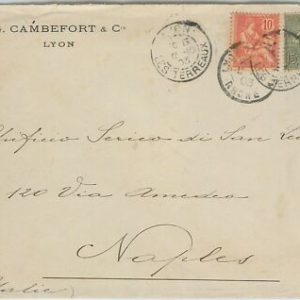 G. CAMBEFORT & Co
LYON
LYON
LES TERREAUX
10
RHONE
Opificio Serico di San Leu
120 Via Amedeo
Naples
Italie